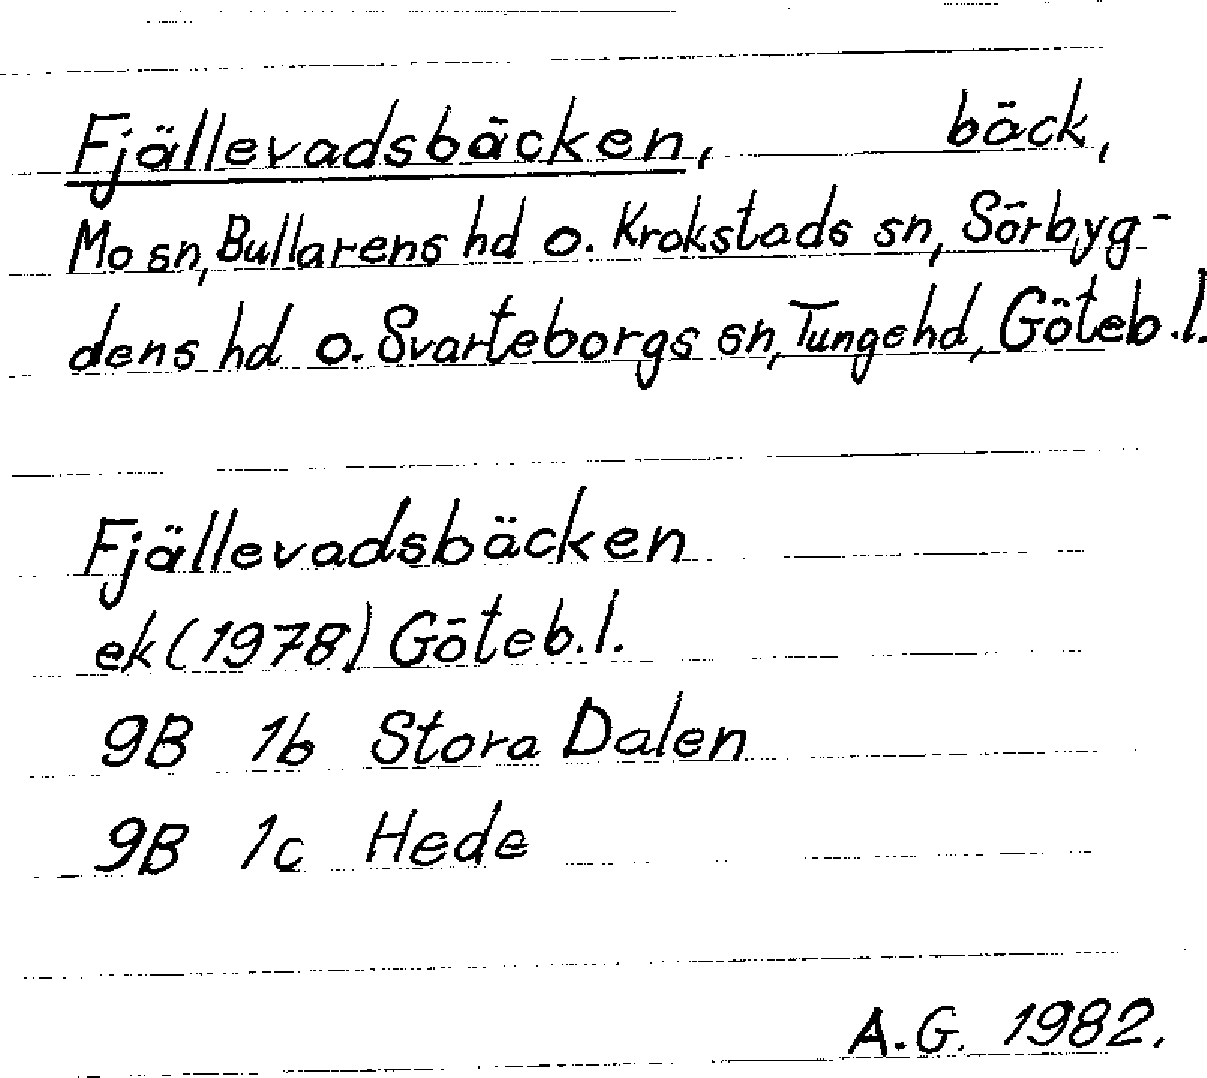 Fjällevadsbäcken, bäck,
Mo sn, Bullarens hd o. Krokstads sn, Sörbyg-
dens hd o. Svarteborgs sn, Tunge hd, Göteb.l.
Fjällevadsbäcken
ek (1978) Göteb.l.
9B 1b Stora Dalen
9B 1c Hede
A.G. 1982.